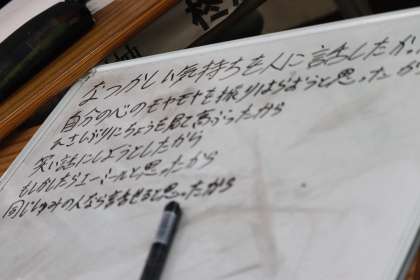 なつかしい気持ちを人に話したか
自分の心のモヤモヤを振りはらおうと思ったか
久さしぶりにちょうを見て高ぶったから
笑い話にしようとしたから
もしかしたらエーミールと思ったから
同じしゅみの人なら話せると思ったから